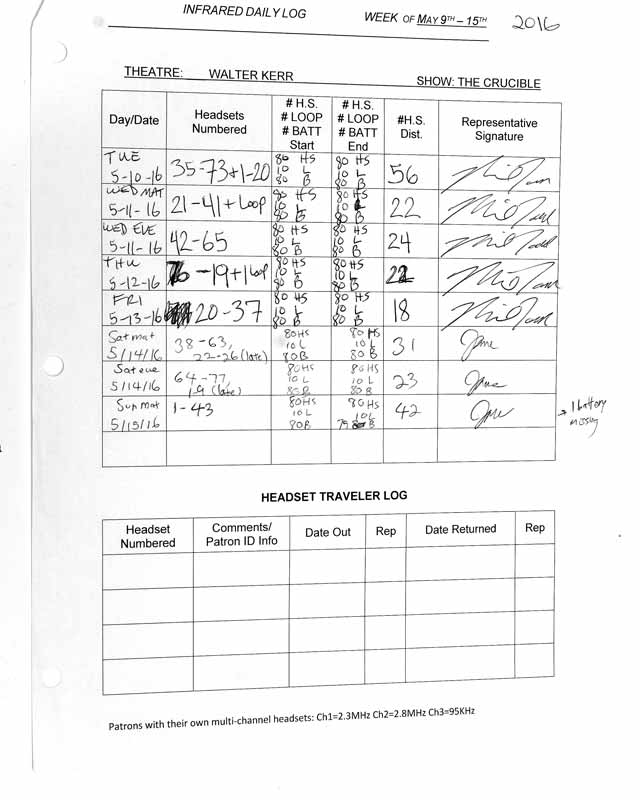 INFRARED DAILY LOG WEEK OF MAY 9TH – 15TH 2016
THEATRE: WALTER KERR SHOW: THE CRUCIBLE
Day/Date
Headsets
Numbered
# H.S.
# LOOP
# BATT
Start
# H.S.
# LOOP
# BATT
End
#H.S.
Dist.
Representative
Signature
TUE
5-10-16
35-73+1-20
80 HS
10 L
80 B
80 HS
10 L
80 B
56
WED MAT
5-11-16
21-41+LOOP
80 HS
10 L
80 B
80 HS
10 L
80 B
22
WED EVE
5-11-16
42-65
80 HS
10 L
80 B
80 HS
10 L
80 B
24
THU
5-12-16
-19+1 LOOP
80 HS
10 L
80 B
80 HS
10 L
80 B
22
FRI
5-13-16
20-37
80 HS
10 L
80 B
80 HS
10 L
80 B
18
Sat mat
5/14/16
38-63,
22-26 (late)
80HS
10 L
80B
80 HS
10 L
80 B
31
Sat eve
5/14/16
64-77,
1-9 (late)
80HS
10 L
80B
80 HS
10 L
80 B
23
Sun mat
5/15/16
1-43
80HS
10L
80B
80 HS
10L
79 B
42
→ 1 battery
missing
HEADSET TRAVELER LOG
Headset
Numbered
Comments/
Patron ID Info
Date Out
Rep
Date Returned
Rep
Patrons with their own multi-channel headsets: Ch1=2.3MHz Ch2=2.8MHz Ch3=95KHz